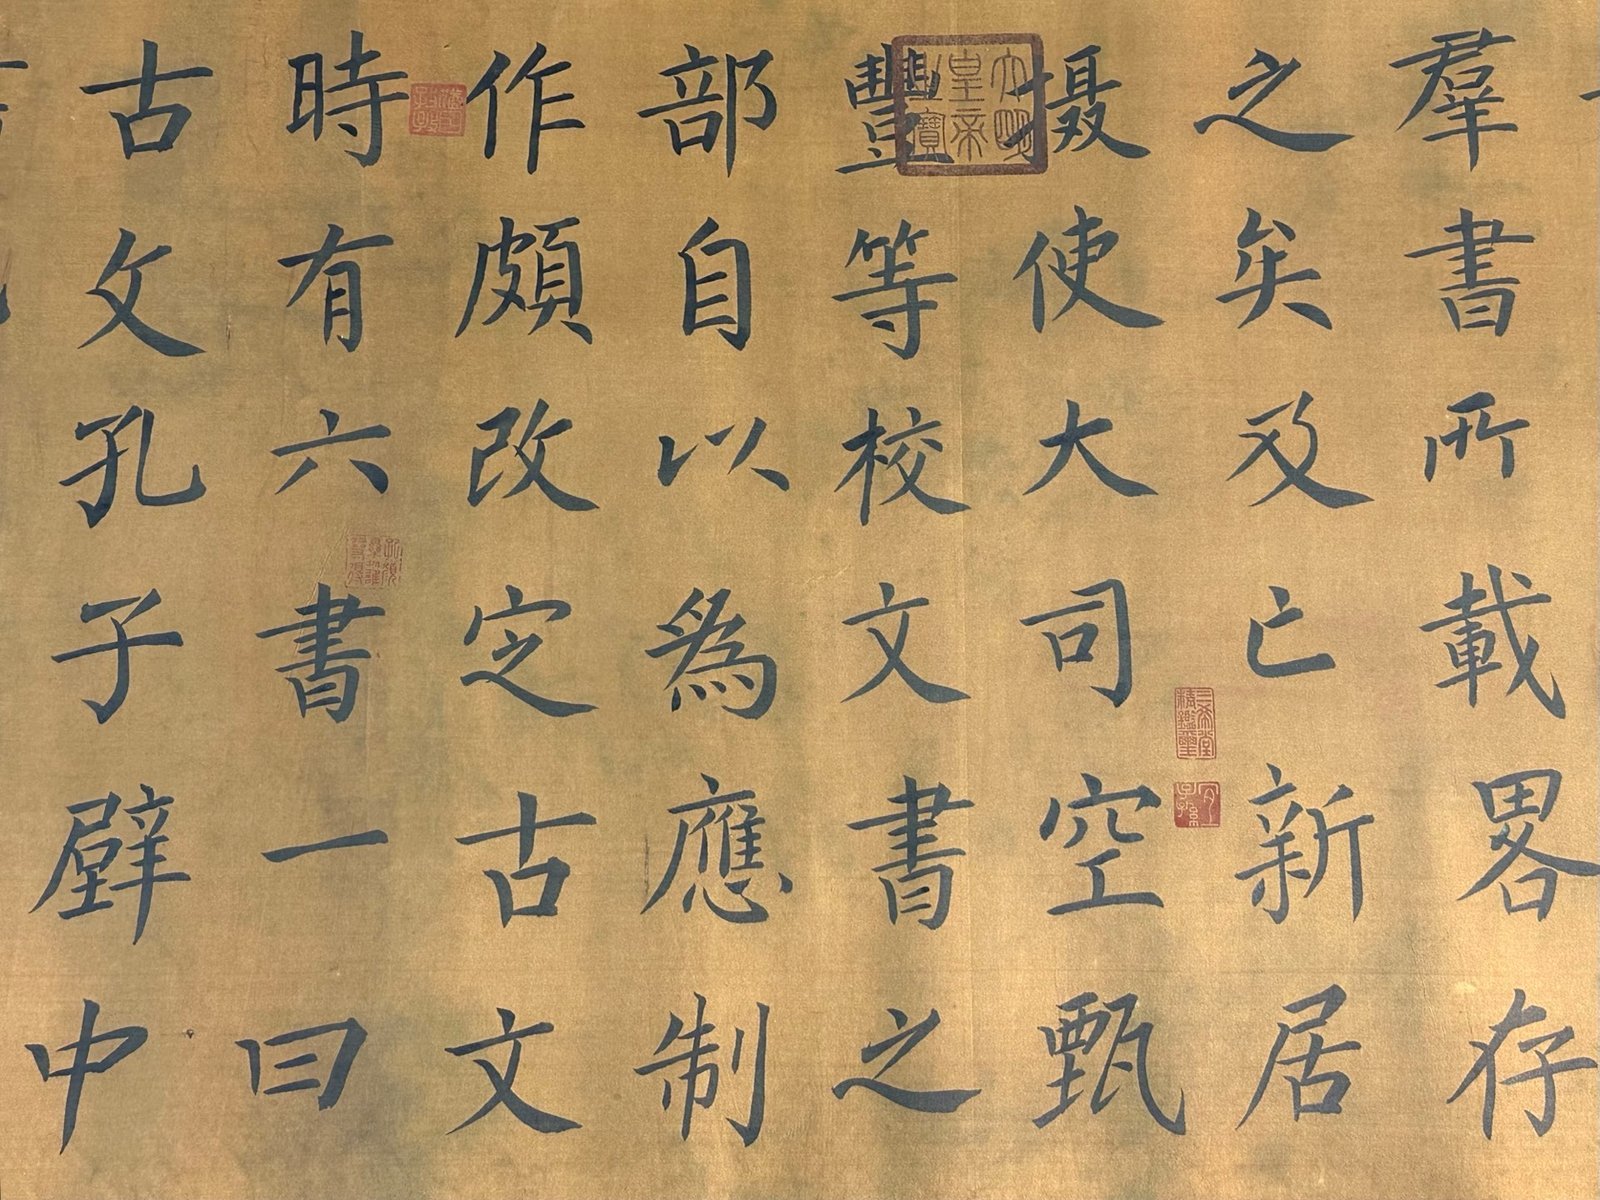 羣書所載畧存
之矣及亡新居
摄使大司空甄
豐等校文書之
部自以為應制
作頗改定古文
時有六書一曰
古文孔子壁中